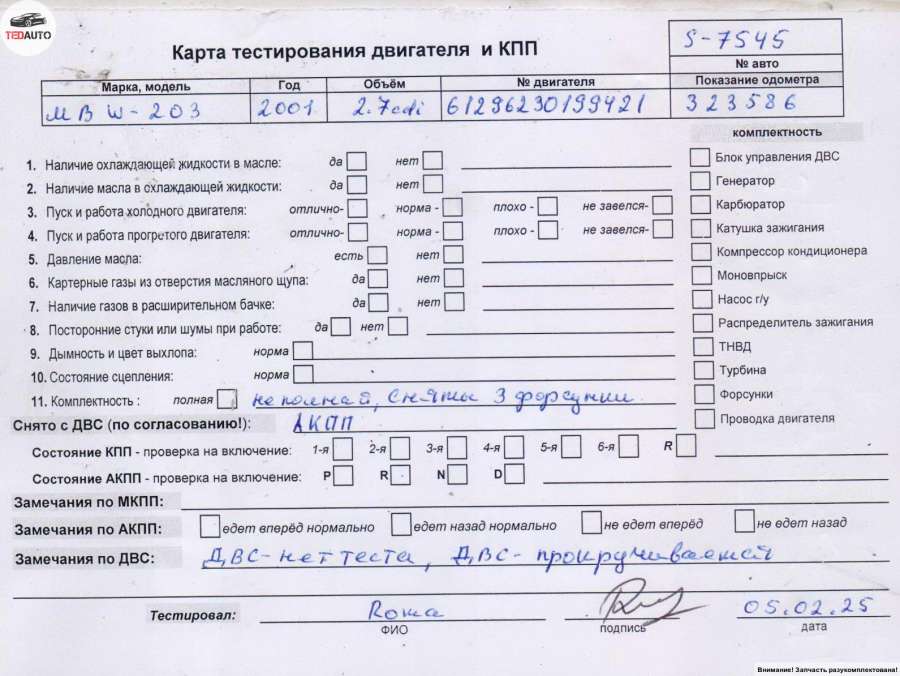 TEDAUTO
S-7545
Карта тестирования двигателя и КПП
№ авто
Марка, модель Год Объём № двигателя Показание одометра
МВ W-203 2001 2.7cdi 61296230199421 323586
комплектность
1. Наличие охлаждающей жидкости в масле: да нет
Блок управления ДВС
2. Наличие масла в охлаждающей жидкости: да нет
Генератор
3. Пуск и работа холодного двигателя: отлично- норма - плохо - не завелся-
Карбюратор
4. Пуск и работа прогретого двигателя: отлично- норма - плохо - не завелся-
Катушка зажигания
5. Давление масла: есть нет
Компрессор кондиционера
6. Картерные газы из отверстия масляного щупа: да нет
Моновпрыск
7. Наличие газов в расширительном бачке: да нет
Насос г/у
8. Посторонние стуки или шумы при работе: да нет
Распределитель зажигания
9. Дымность и цвет выхлопа: норма
ТНВД
10. Состояние сцепления: норма
Турбина
11. Комплектность : полная неполная, сняты 3 форсунки
Форсунки
Снято с ДВС (по согласованию!): АКПП
Проводка двигателя
Состояние КПП - проверка на включение: 1-я 2-я 3-я 4-я 5-я 6-я R
Состояние АКПП - проверка на включение: P R N D
Замечания по МКПП:
Замечания по АКПП: едет вперёд нормально едет назад нормально не едет вперёд не едет назад
Замечания по ДВС: ДВС-нет теста, ДВС-прокручивается
Тестировал: Рома 05.02.25
ФИО подпись дата
Внимание! Запчасть разукомплектована!